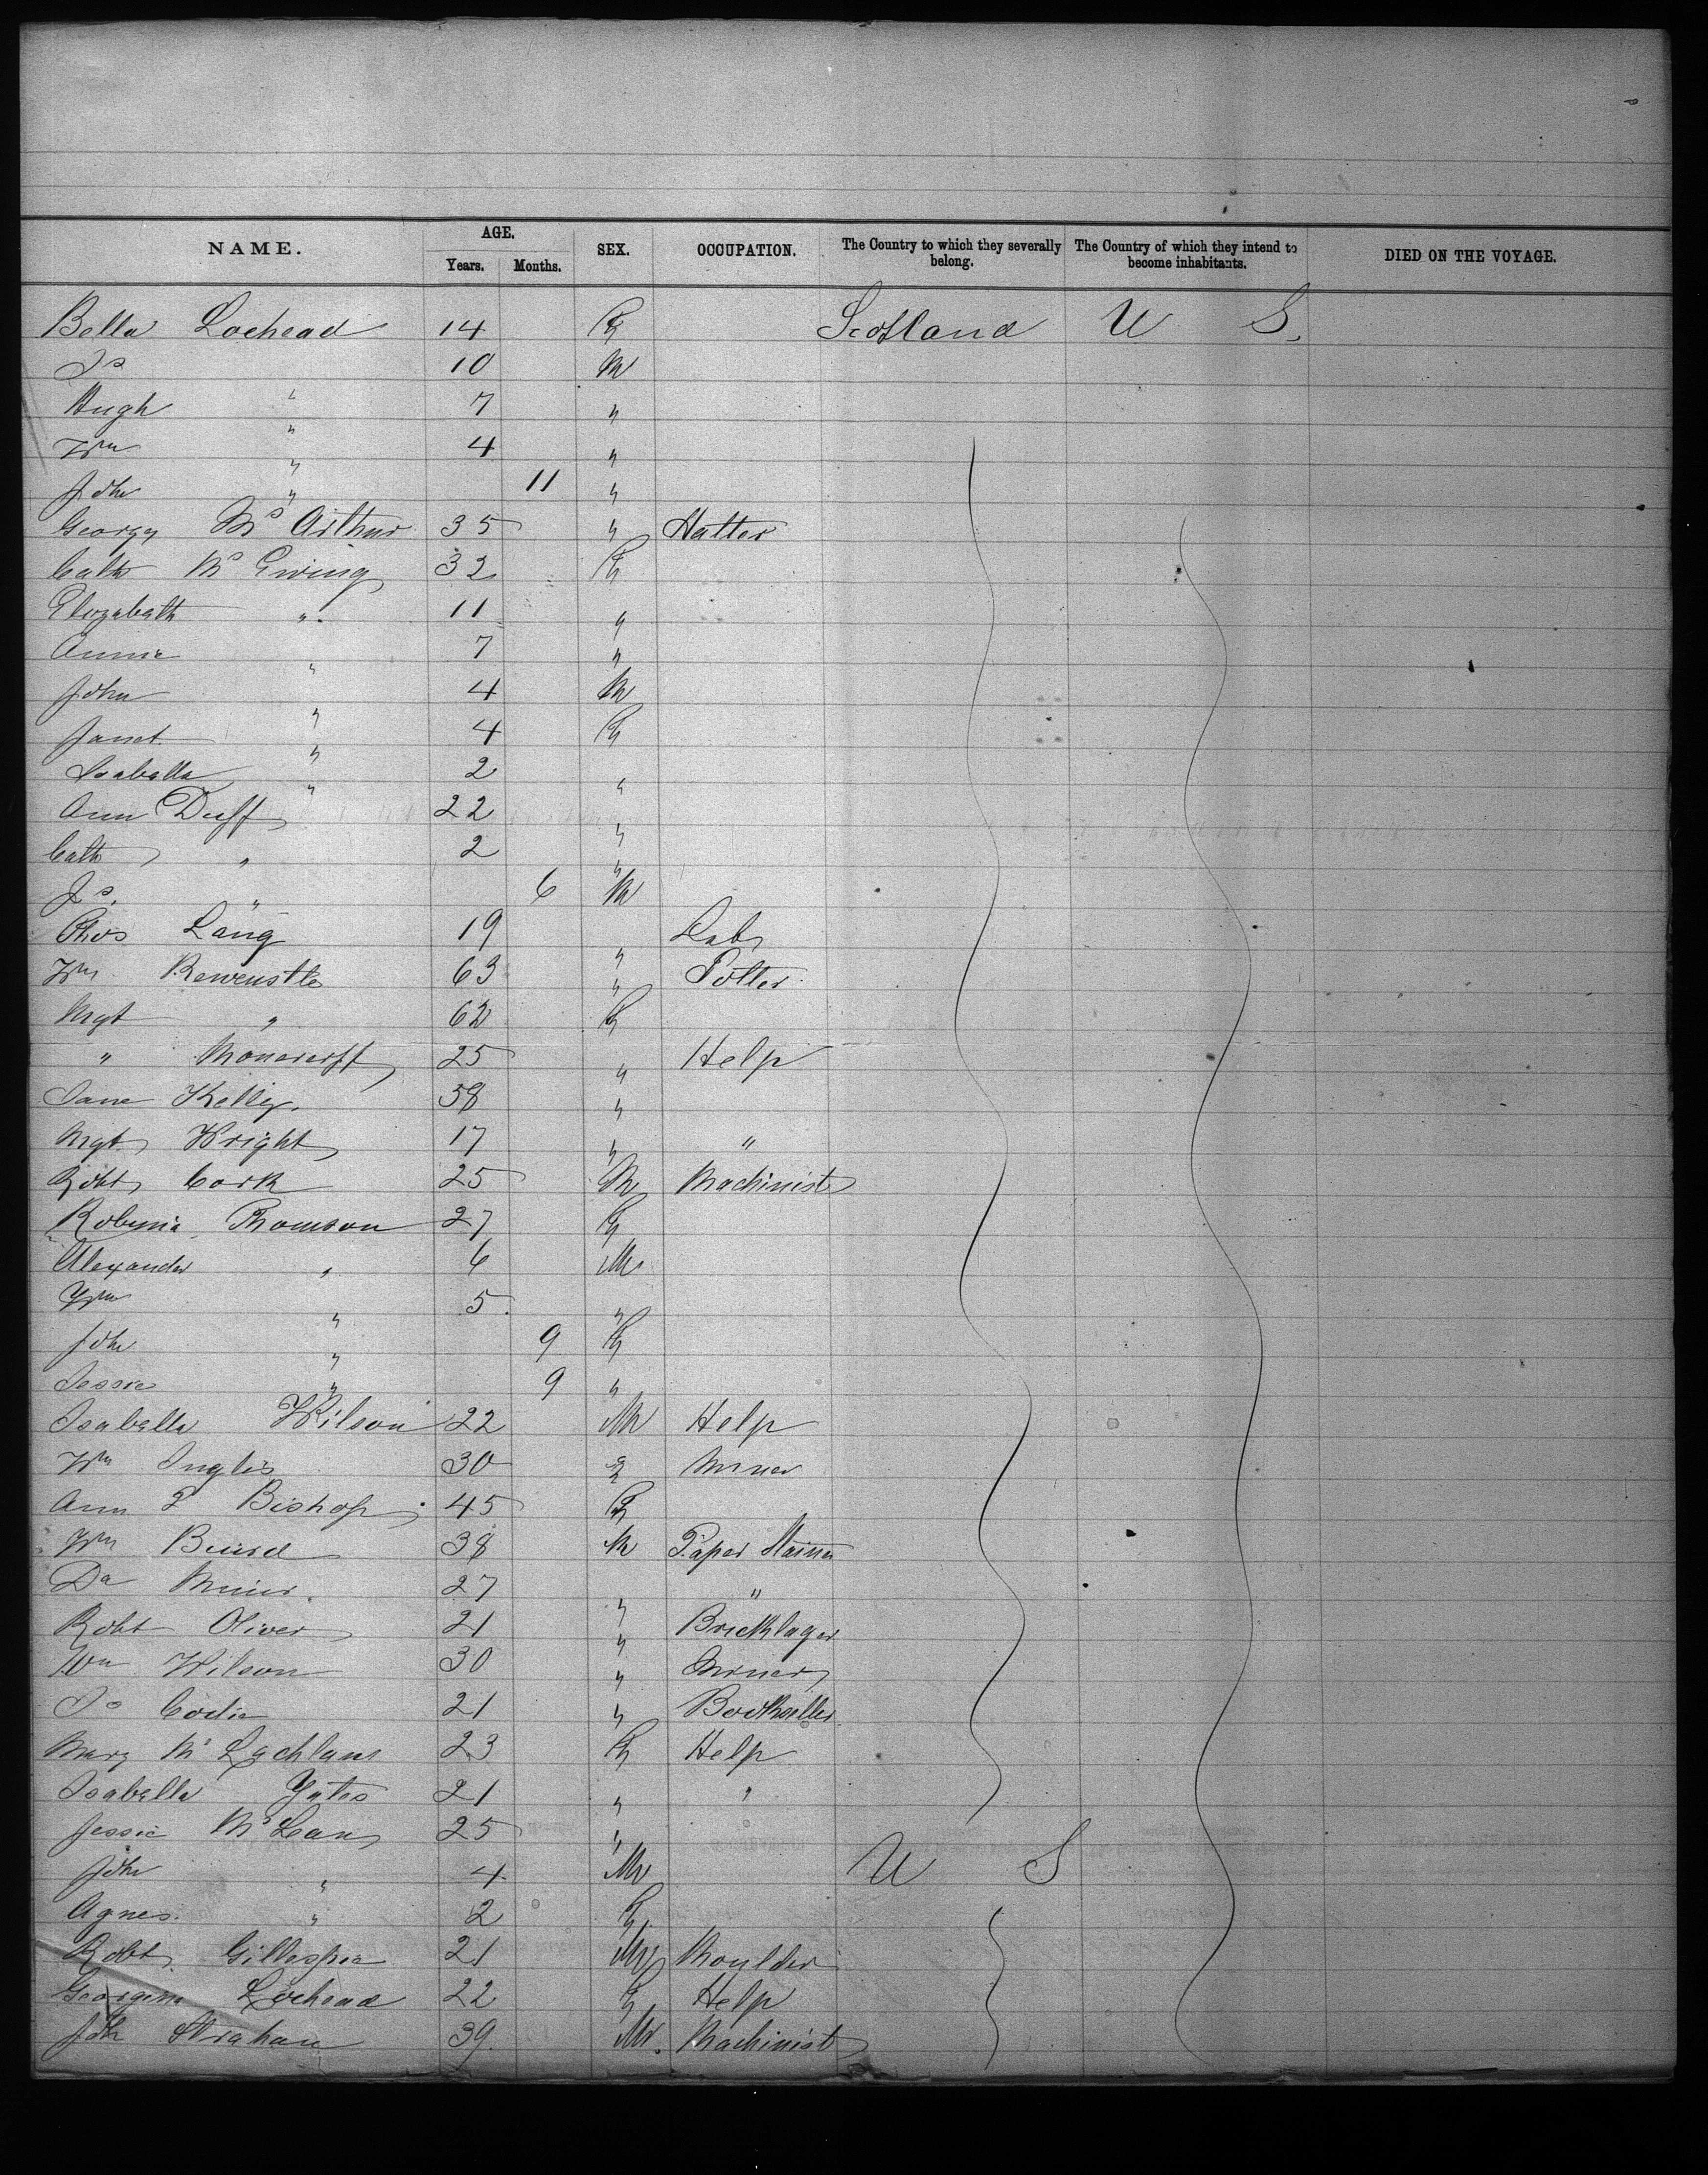 NAME. AGE. SEX. OCCUPATION. The Country to which they severally belong. The Country of which they intend to become inhabitants. DIED ON THE VOYAGE.
Years. Months.
Bella Lochead 14 F Scotland U S.
Js 10 M
Hugh " 7 "
Wm " 4 "
Joh " 11 "
George Mc Arthur 35 " Hatter
Cath Mc Ewing 32 F
Elizabeth " 11 "
Annie " 7 "
John " 4 M
Janet " 4 F
Isabella " 2 "
Ann Duff 22 "
Cath " 2 "
Js. " 6 M
Thos Lang 19 " Lab
Wm 63 " Potter
Mgt " 62 F
" Moncreiff 25 " Help
Jane Kelly. 58 "
Mgt Wright 17 " "
Robt Cork 25 M Machinist
Robina Thomson 27 F
Alexander " 6 M
Wm " 5. "
Joh " 9 F
Jessie " 9 "
Isabella Wilson 22 M Help
Wm Inglis 30 Miner
Ann Bishop 45 F
Wm Baird 38 M Paper Stainer
Da Muir. 27 " "
Robt Oliver 21 " Bricklayer
Wm Wilson 30 " Miner
Js 21 " Bookseller
Mary Mc Lachlans 23 F Help
Isabella Yates 21 " "
Jessie Mc Lean 25 "
Joh " 4 M U S
Agnes. " 2 F
Robt. Gillespie 21 M Moulder
Georgina Lochead 22 F Help
Joh Strahan 39. M. Machinist